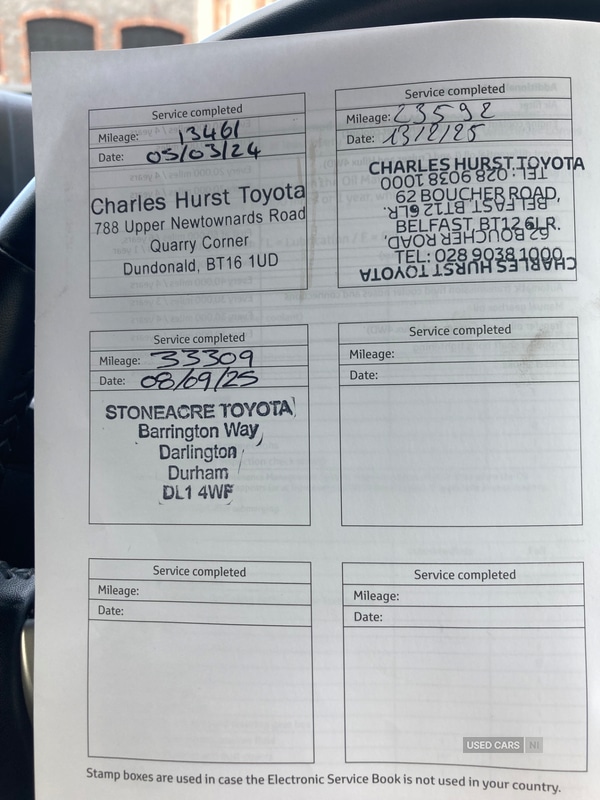 Service completed
Mileage: 13461
Date: 05/03/24
Charles Hurst Toyota
788 Upper Newtownards Road
Quarry Corner
Dundonald, BT16 1UD
Service completed
Mileage: 23592
Date: 13/2/25
CHARLES HURST TOYOTA
TEL: 028 9038 1000
62 BOUCHER ROAD,
BELFAST, BT12 6LR.
BELFAST, BT12 6LR.
62 BOUCHER ROAD,
TEL: 028 9038 1000
CHARLES HURST TOYOTA
Service completed
Mileage: 33309
Date: 08/09/25
STONEACRE TOYOTA
Barrington Way
Darlington
Durham
DL1 4WF
Service completed
Mileage:
Date:
Service completed
Mileage:
Date:
Service completed
Mileage:
Date:
USED CARS NI
Stamp boxes are used in case the Electronic Service Book is not used in your country.